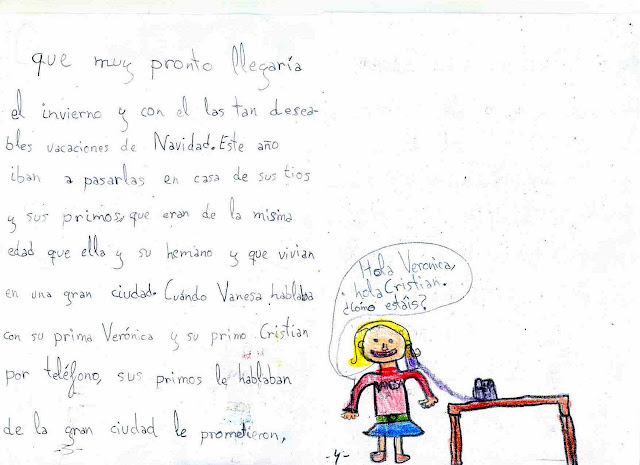 que muy pronto llegaría
el invierno y con el las tan desea-
bles vacaciones de Navidad. Este año
iban a pasarlas en casa de sus tios
y sus primos, que eran de la misma
edad que ella y su hemano y que vivian
en una gran ciudad. Cuándo Vanesa hablaba
con su prima Verónica y su primo Cristian
por teléfono, sus primos le hablaban
de la gran ciudad le prometieron,
-3-
Hola Veronica,
hola Cristian.
¿Cómo estáis?
-4-